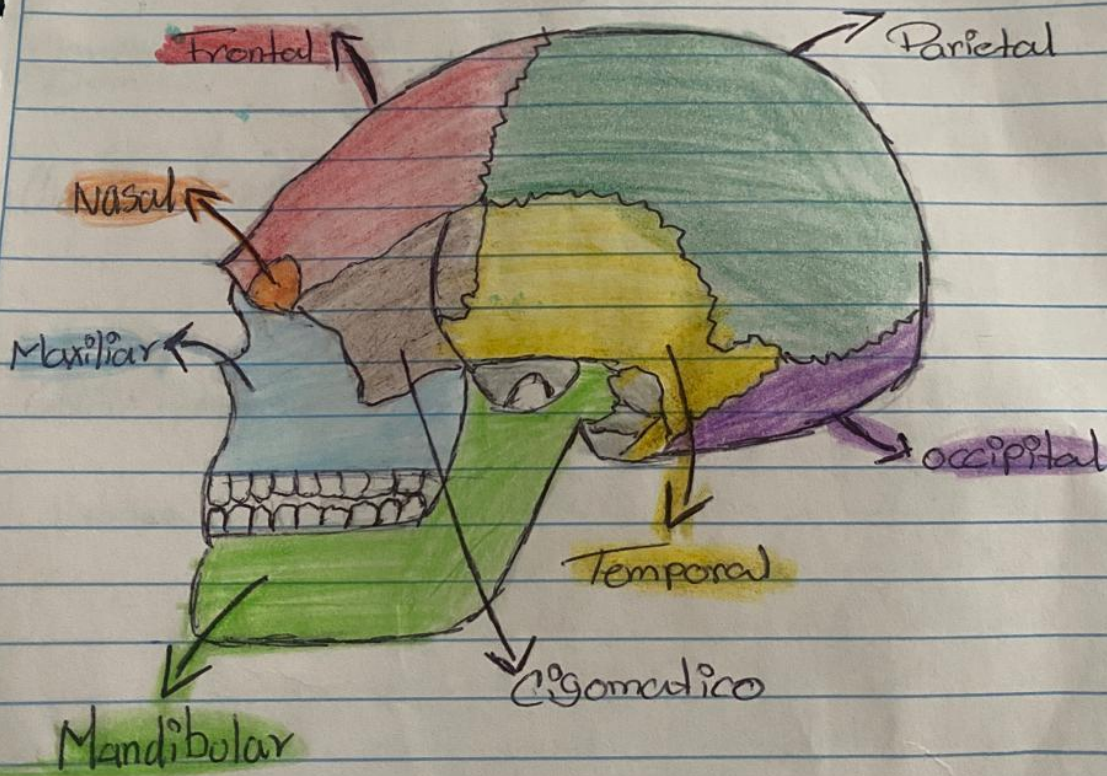 Frontal
Parietal
Nasal
Maxiliar
occipital
Temporal
Cigomatico
Mandibolar